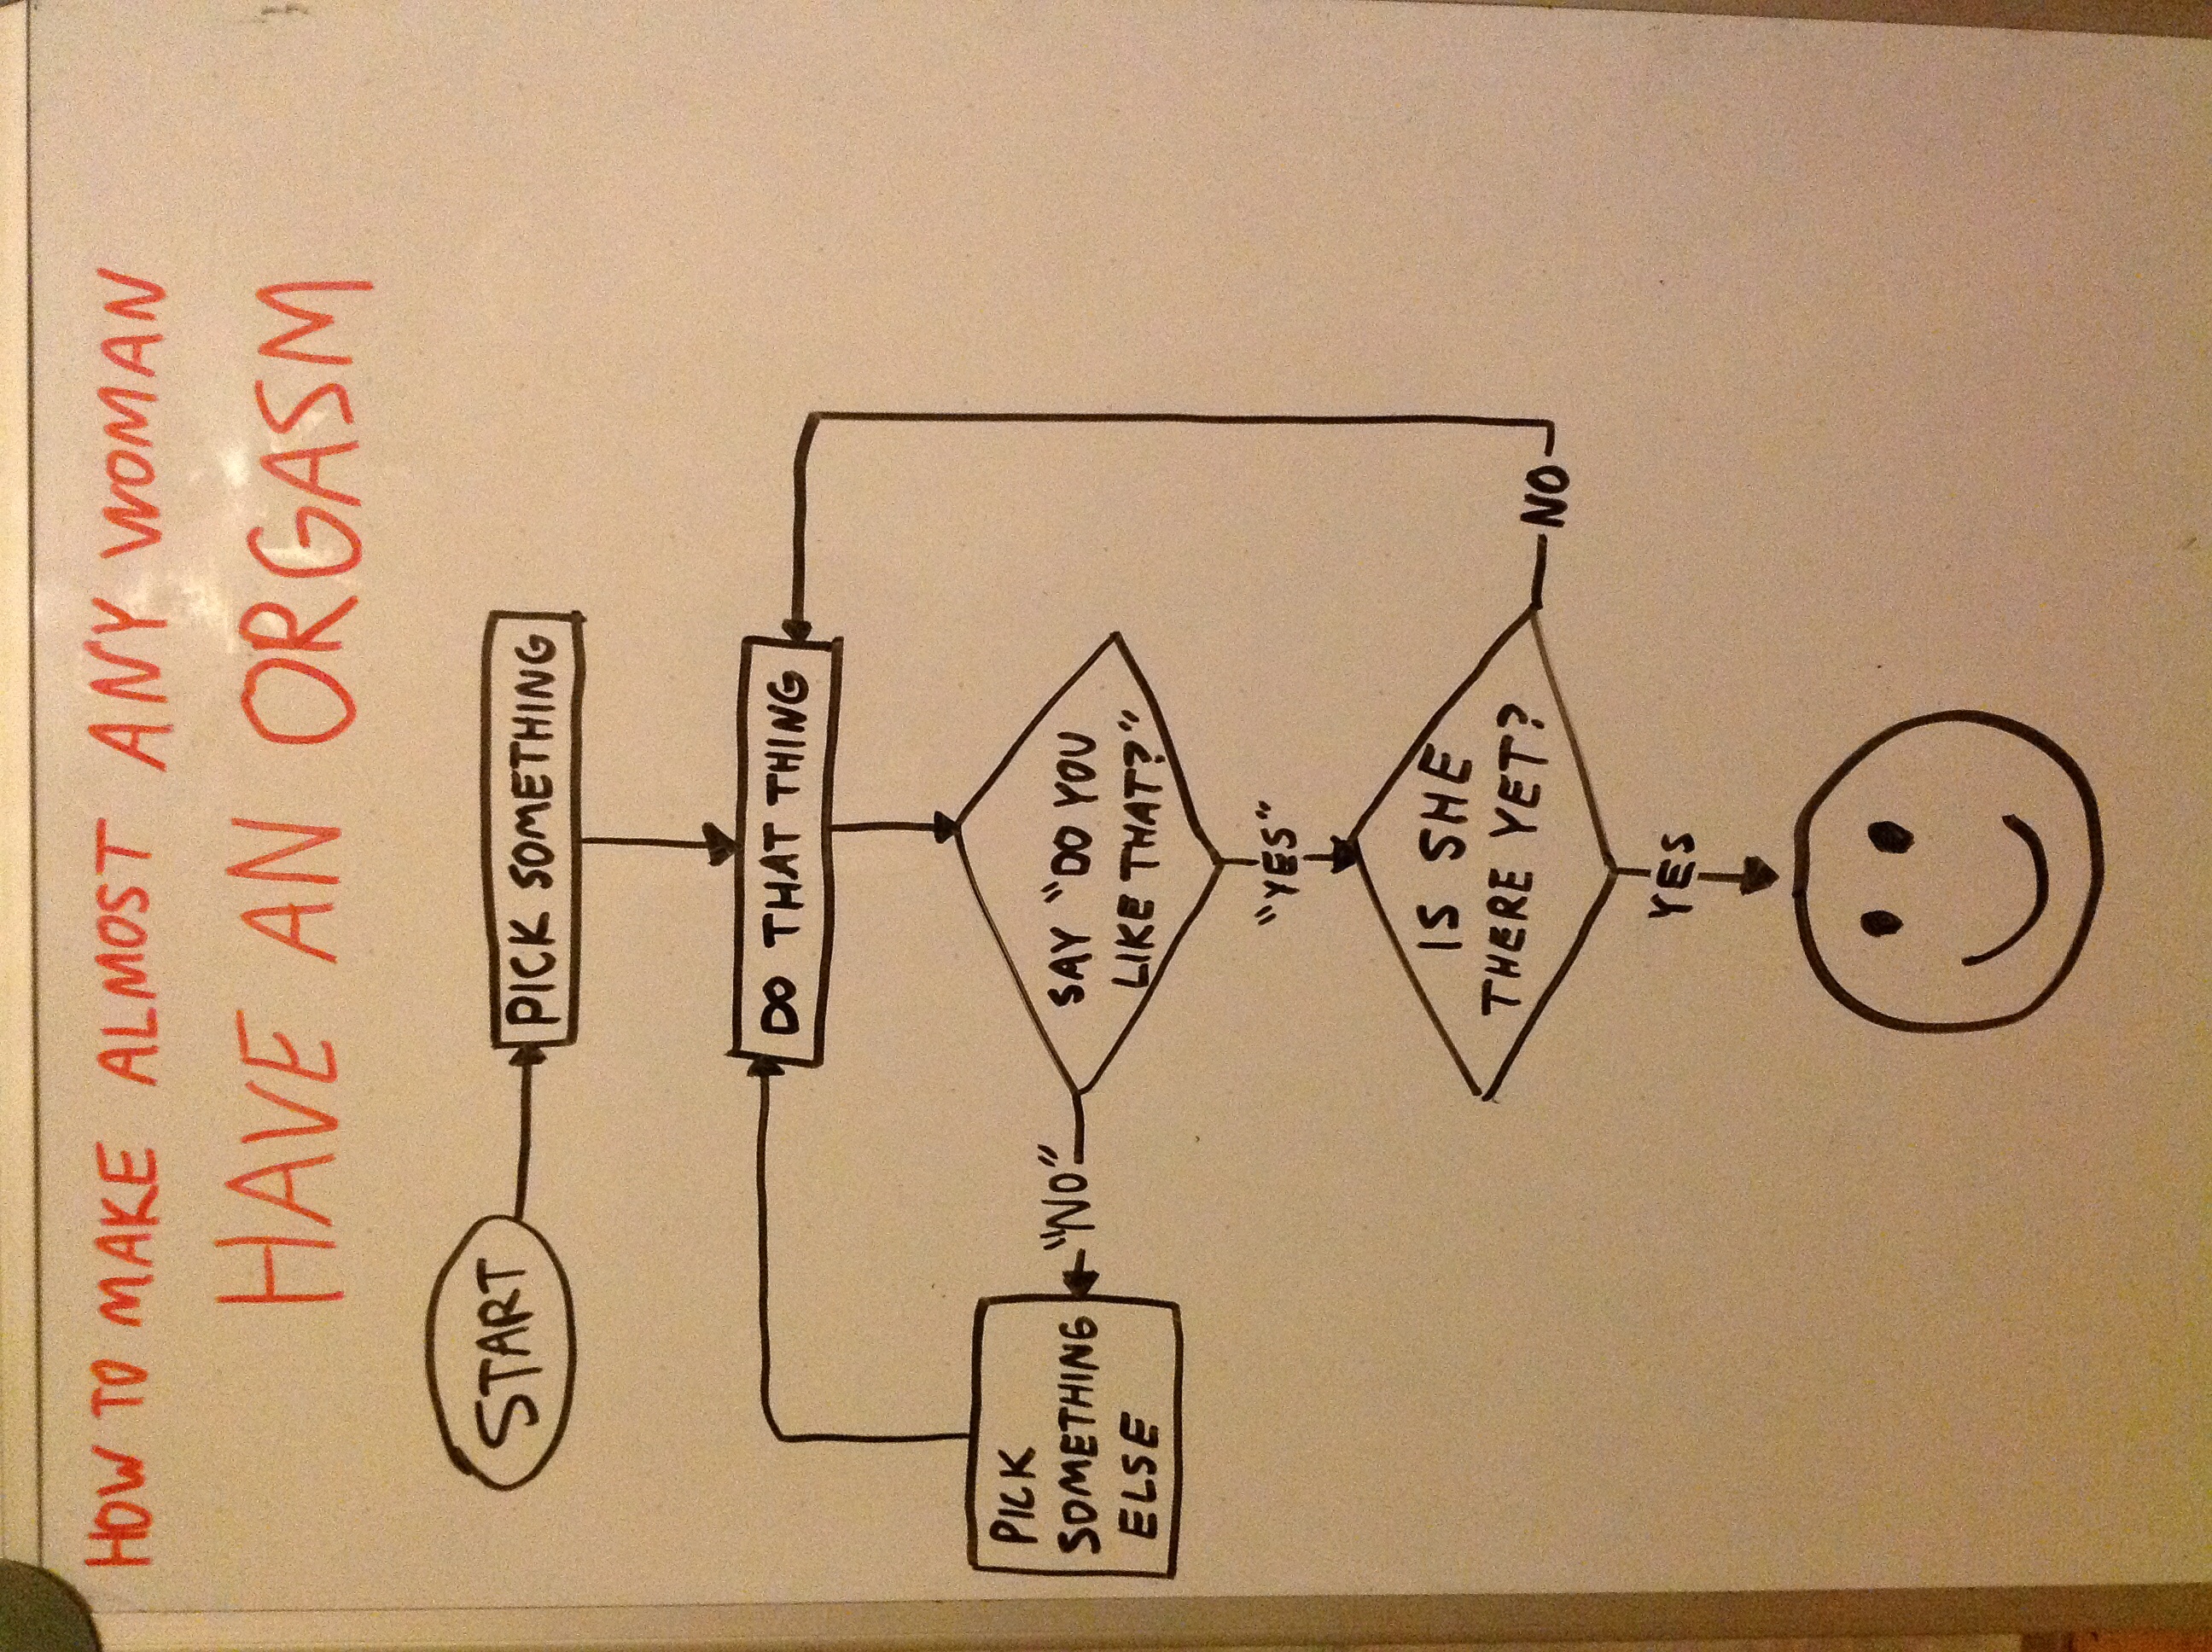 HOW TO MAKE ALMOST ANY WOMAN
HAVE AN ORGASM
START
PICK SOMETHING
DO THAT THING
SAY "DO YOU
LIKE THAT?"
"NO"
PICK
SOMETHING
ELSE
"YES"
IS SHE
THERE YET?
NO
YES